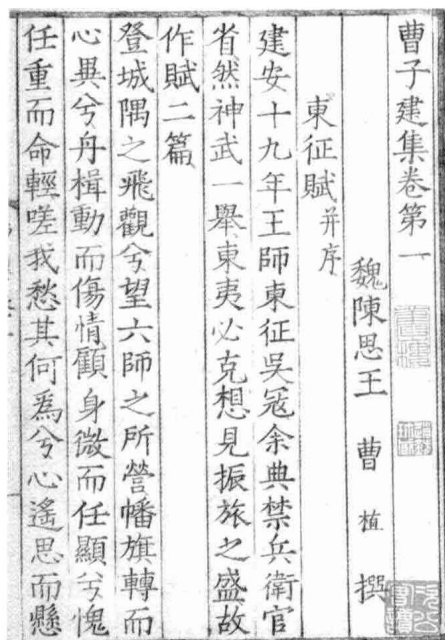 曹子建集卷第一
魏陳思王 曹 植 撰
東征賦并序
建安十九年王師東征吳寇余典禁兵衛官
省然神武一舉東夷必克想見振旅之盛故
作賦二篇
登城隅之飛觀兮望六師之所營幡旗轉而
心異兮舟楫動而傷情顧身微而任顯兮愧
任重而命輕嗟我愁其何為兮心遙思而懸